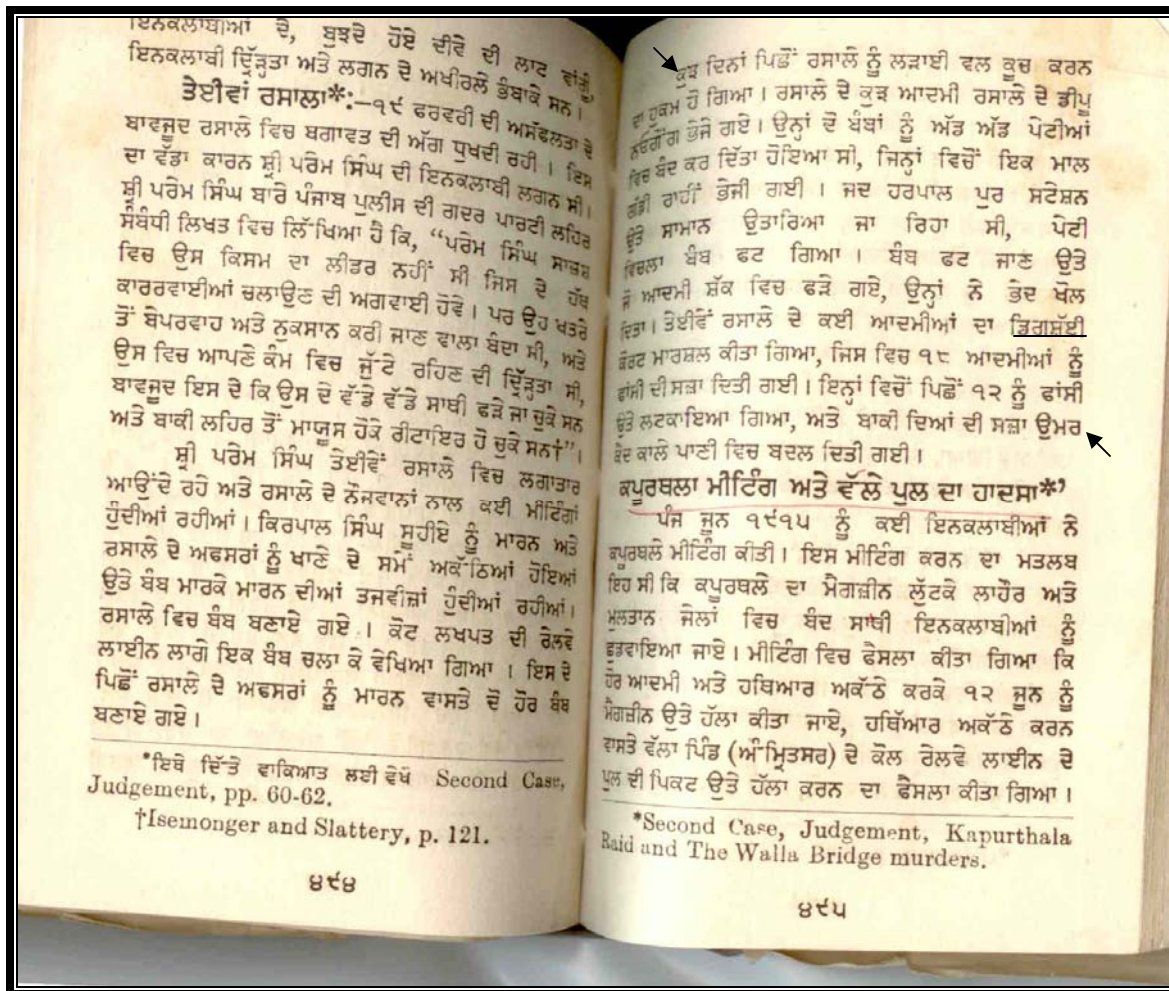 ਇਨਕਲਾਬੀਆਂ ਦੇ, ਬੁਝਦੇ ਹੋਏ ਦੀਵੇ ਦੀ ਲਾਟ ਵਾਂਗੂੰ,
ਇਨਕਲਾਬੀ ਦ੍ਰਿੜ੍ਹਤਾ ਅਤੇ ਲਗਨ ਦੇ ਅਖੀਰਲੇ ਭੰਬਾਕੇ ਸਨ।
ਤੇਈਵਾਂ ਰਸਾਲਾ*:—੧੯ ਫਰਵਰੀ ਦੀ ਅਸੱਫਲਤਾ ਦੇ
ਬਾਵਜੂਦ ਰਸਾਲੇ ਵਿਚ ਬਗਾਵਤ ਦੀ ਅੱਗ ਧੁਖਦੀ ਰਹੀ। ਇਸ
ਦਾ ਵੱਡਾ ਕਾਰਨ ਸ਼੍ਰੀ ਪਰੇਮ ਸਿੰਘ ਦੀ ਇਨਕਲਾਬੀ ਲਗਨ ਸੀ।
ਸ਼੍ਰੀ ਪਰੇਮ ਸਿੰਘ ਬਾਰੇ ਪੰਜਾਬ ਪੁਲੀਸ ਦੀ ਗਦਰ ਪਾਰਟੀ ਲਹਿਰ
ਸੰਬੰਧੀ ਲਿਖਤ ਵਿਚ ਲਿੱਖਿਆ ਹੈ ਕਿ, “ਪਰੇਮ ਸਿੰਘ ਸਾਜ਼ਸ਼
ਵਿਚ ਉਸ ਕਿਸਮ ਦਾ ਲੀਡਰ ਨਹੀਂ ਸੀ ਜਿਸ ਦੇ ਹੱਥ
ਕਾਰਰਵਾਈਆਂ ਚਲਾਉਣ ਦੀ ਅਗਵਾਈ ਹੋਵੇ। ਪਰ ਉਹ ਖਤਰੇ
ਤੋਂ ਬੇਪਰਵਾਹ ਅਤੇ ਨੁਕਸਾਨ ਕਰੀ ਜਾਣ ਵਾਲਾ ਬੰਦਾ ਸੀ, ਅਤੇ
ਉਸ ਵਿਚ ਆਪਣੇ ਕੰਮ ਵਿਚ ਜੁੱਟੇ ਰਹਿਣ ਦੀ ਦ੍ਰਿੜ੍ਹਤਾ ਸੀ,
ਬਾਵਜੂਦ ਇਸ ਦੇ ਕਿ ਉਸ ਦੇ ਵੱਡੇ ਵੱਡੇ ਸਾਥੀ ਫੜੇ ਜਾ ਚੁਕੇ ਸਨ
ਅਤੇ ਬਾਕੀ ਲਹਿਰ ਤੋਂ ਮਾਯੂਸ ਹੋਕੇ ਰੀਟਾਇਰ ਹੋ ਚੁਕੇ ਸਨ†”।
ਸ਼੍ਰੀ ਪਰੇਮ ਸਿੰਘ ਤੇਈਵੇਂ ਰਸਾਲੇ ਵਿਚ ਲਗਾਤਾਰ
ਆਉਂਦੇ ਰਹੇ ਅਤੇ ਰਸਾਲੇ ਦੇ ਨੌਜਵਾਨਾਂ ਨਾਲ ਕਈ ਮੀਟਿੰਗਾਂ
ਹੁੰਦੀਆਂ ਰਹੀਆਂ। ਕਿਰਪਾਲ ਸਿੰਘ ਸੂਹੀਏ ਨੂੰ ਮਾਰਨ ਅਤੇ
ਰਸਾਲੇ ਦੇ ਅਫਸਰਾਂ ਨੂੰ ਖਾਣੇ ਦੇ ਸਮੇਂ ਅਕੱਠਿਆਂ ਹੋਇਆਂ
ਉਤੇ ਬੰਬ ਮਾਰਕੇ ਮਾਰਨ ਦੀਆਂ ਤਜਵੀਜ਼ਾਂ ਹੁੰਦੀਆਂ ਰਹੀਆਂ।
ਰਸਾਲੇ ਵਿਚ ਬੰਬ ਬਣਾਏ ਗਏ। ਕੋਟ ਲਖਪਤ ਦੀ ਰੇਲਵੇ
ਲਾਈਨ ਲਾਗੇ ਇਕ ਬੰਬ ਚਲਾ ਕੇ ਵੇਖਿਆ ਗਿਆ। ਇਸ ਦੇ
ਪਿਛੋਂ ਰਸਾਲੇ ਦੇ ਅਫਸਰਾਂ ਨੂੰ ਮਾਰਨ ਵਾਸਤੇ ਦੋ ਹੋਰ ਬੰਬ
ਬਣਾਏ ਗਏ।
*ਇਥੇ ਦਿੱਤੇ ਵਾਕਿਆਤ ਲਈ ਵੇਖੋ Second Case,
Judgement, pp. 60-62.
†Isemonger and Slattery, p. 121.
੪੯੪
ਕੁਝ ਦਿਨਾਂ ਪਿਛੋਂ ਰਸਾਲੇ ਨੂੰ ਲੜਾਈ ਵਲ ਕੂਚ ਕਰਨ
ਦਾ ਹੁਕਮ ਹੋ ਗਿਆ। ਰਸਾਲੇ ਦੇ ਕੁਝ ਆਦਮੀ ਰਸਾਲੇ ਦੇ ਡੀਪੂ
ਨਓਗੌਂਗ ਭੇਜੇ ਗਏ। ਉਨ੍ਹਾਂ ਦੋ ਬੰਬਾਂ ਨੂੰ ਅੱਡ ਅੱਡ ਪੇਟੀਆਂ
ਵਿਚ ਬੰਦ ਕਰ ਦਿੱਤਾ ਹੋਇਆ ਸੀ, ਜਿਨ੍ਹਾਂ ਵਿਚੋਂ ਇਕ ਮਾਲ
ਗੱਡੀ ਰਾਹੀਂ ਭੇਜੀ ਗਈ। ਜਦ ਹਰਪਾਲ ਪੁਰ ਸਟੇਸ਼ਨ
ਉਤੇ ਸਾਮਾਨ ਉਤਾਰਿਆ ਜਾ ਰਿਹਾ ਸੀ, ਪੇਟੀ
ਵਿਚਲਾ ਬੰਬ ਫਟ ਗਿਆ। ਬੰਬ ਫਟ ਜਾਣ ਉਤੇ
ਜੋ ਆਦਮੀ ਸ਼ੱਕ ਵਿਚ ਫੜੇ ਗਏ, ਉਨ੍ਹਾਂ ਨੇ ਭੇਦ ਖੋਲ
ਦਿਤਾ। ਤੇਈਵੇਂ ਰਸਾਲੇ ਦੇ ਕਈ ਆਦਮੀਆਂ ਦਾ ਡਿਗਸ਼ੱਈ
ਕੋਰਟ ਮਾਰਸ਼ਲ ਕੀਤਾ ਗਿਆ, ਜਿਸ ਵਿਚ ੧੮ ਆਦਮੀਆਂ ਨੂੰ
ਫਾਂਸੀ ਦੀ ਸਜ਼ਾ ਦਿਤੀ ਗਈ। ਇਨ੍ਹਾਂ ਵਿਚੋਂ ਪਿਛੋਂ ੧੨ ਨੂੰ ਫਾਂਸੀ
ਉਤੇ ਲਟਕਾਇਆ ਗਿਆ, ਅਤੇ ਬਾਕੀ ਦਿਆਂ ਦੀ ਸਜ਼ਾ ਉਮਰ
ਕੈਦ ਕਾਲੇ ਪਾਣੀ ਵਿਚ ਬਦਲ ਦਿਤੀ ਗਈ।
ਕਪੂਰਥਲਾ ਮੀਟਿੰਗ ਅਤੇ ਵੱਲੇ ਪੁਲ ਦਾ ਹਾਦਸਾ*’
ਪੰਜ ਜੂਨ ੧੯੧੫ ਨੂੰ ਕਈ ਇਨਕਲਾਬੀਆਂ ਨੇ
ਕਪੂਰਥਲੇ ਮੀਟਿੰਗ ਕੀਤੀ। ਇਸ ਮੀਟਿੰਗ ਕਰਨ ਦਾ ਮਤਲਬ
ਇਹ ਸੀ ਕਿ ਕਪੂਰਥਲੇ ਦਾ ਮੈਗਜ਼ੀਨ ਲੁੱਟਕੇ ਲਾਹੌਰ ਅਤੇ
ਮੁਲਤਾਨ ਜੇਲਾਂ ਵਿਚ ਬੰਦ ਸਾਥੀ ਇਨਕਲਾਬੀਆਂ ਨੂੰ
ਛੁਡਵਾਇਆ ਜਾਏ। ਮੀਟਿੰਗ ਵਿਚ ਫੈਸਲਾ ਕੀਤਾ ਗਿਆ ਕਿ
ਹੋਰ ਆਦਮੀ ਅਤੇ ਹਥਿਆਰ ਅਕੱਠੇ ਕਰਕੇ ੧੨ ਜੂਨ ਨੂੰ
ਮੈਗਜ਼ੀਨ ਉਤੇ ਹੱਲਾ ਕੀਤਾ ਜਾਏ, ਹਥਿੱਆਰ ਅਕੱਠੇ ਕਰਨ
ਵਾਸਤੇ ਵੱਲਾ ਪਿੰਡ (ਅੰਮ੍ਰਿਤਸਰ) ਦੇ ਕੋਲ ਰੇਲਵੇ ਲਾਈਨ ਦੇ
ਪੁਲ ਦੀ ਪਿਕਟ ਉਤੇ ਹੱਲਾ ਕਰਨ ਦਾ ਫੈਸਲਾ ਕੀਤਾ ਗਿਆ।
*Second Case, Judgement, Kapurthala
Raid and The Walla Bridge murders.
੪੯੫